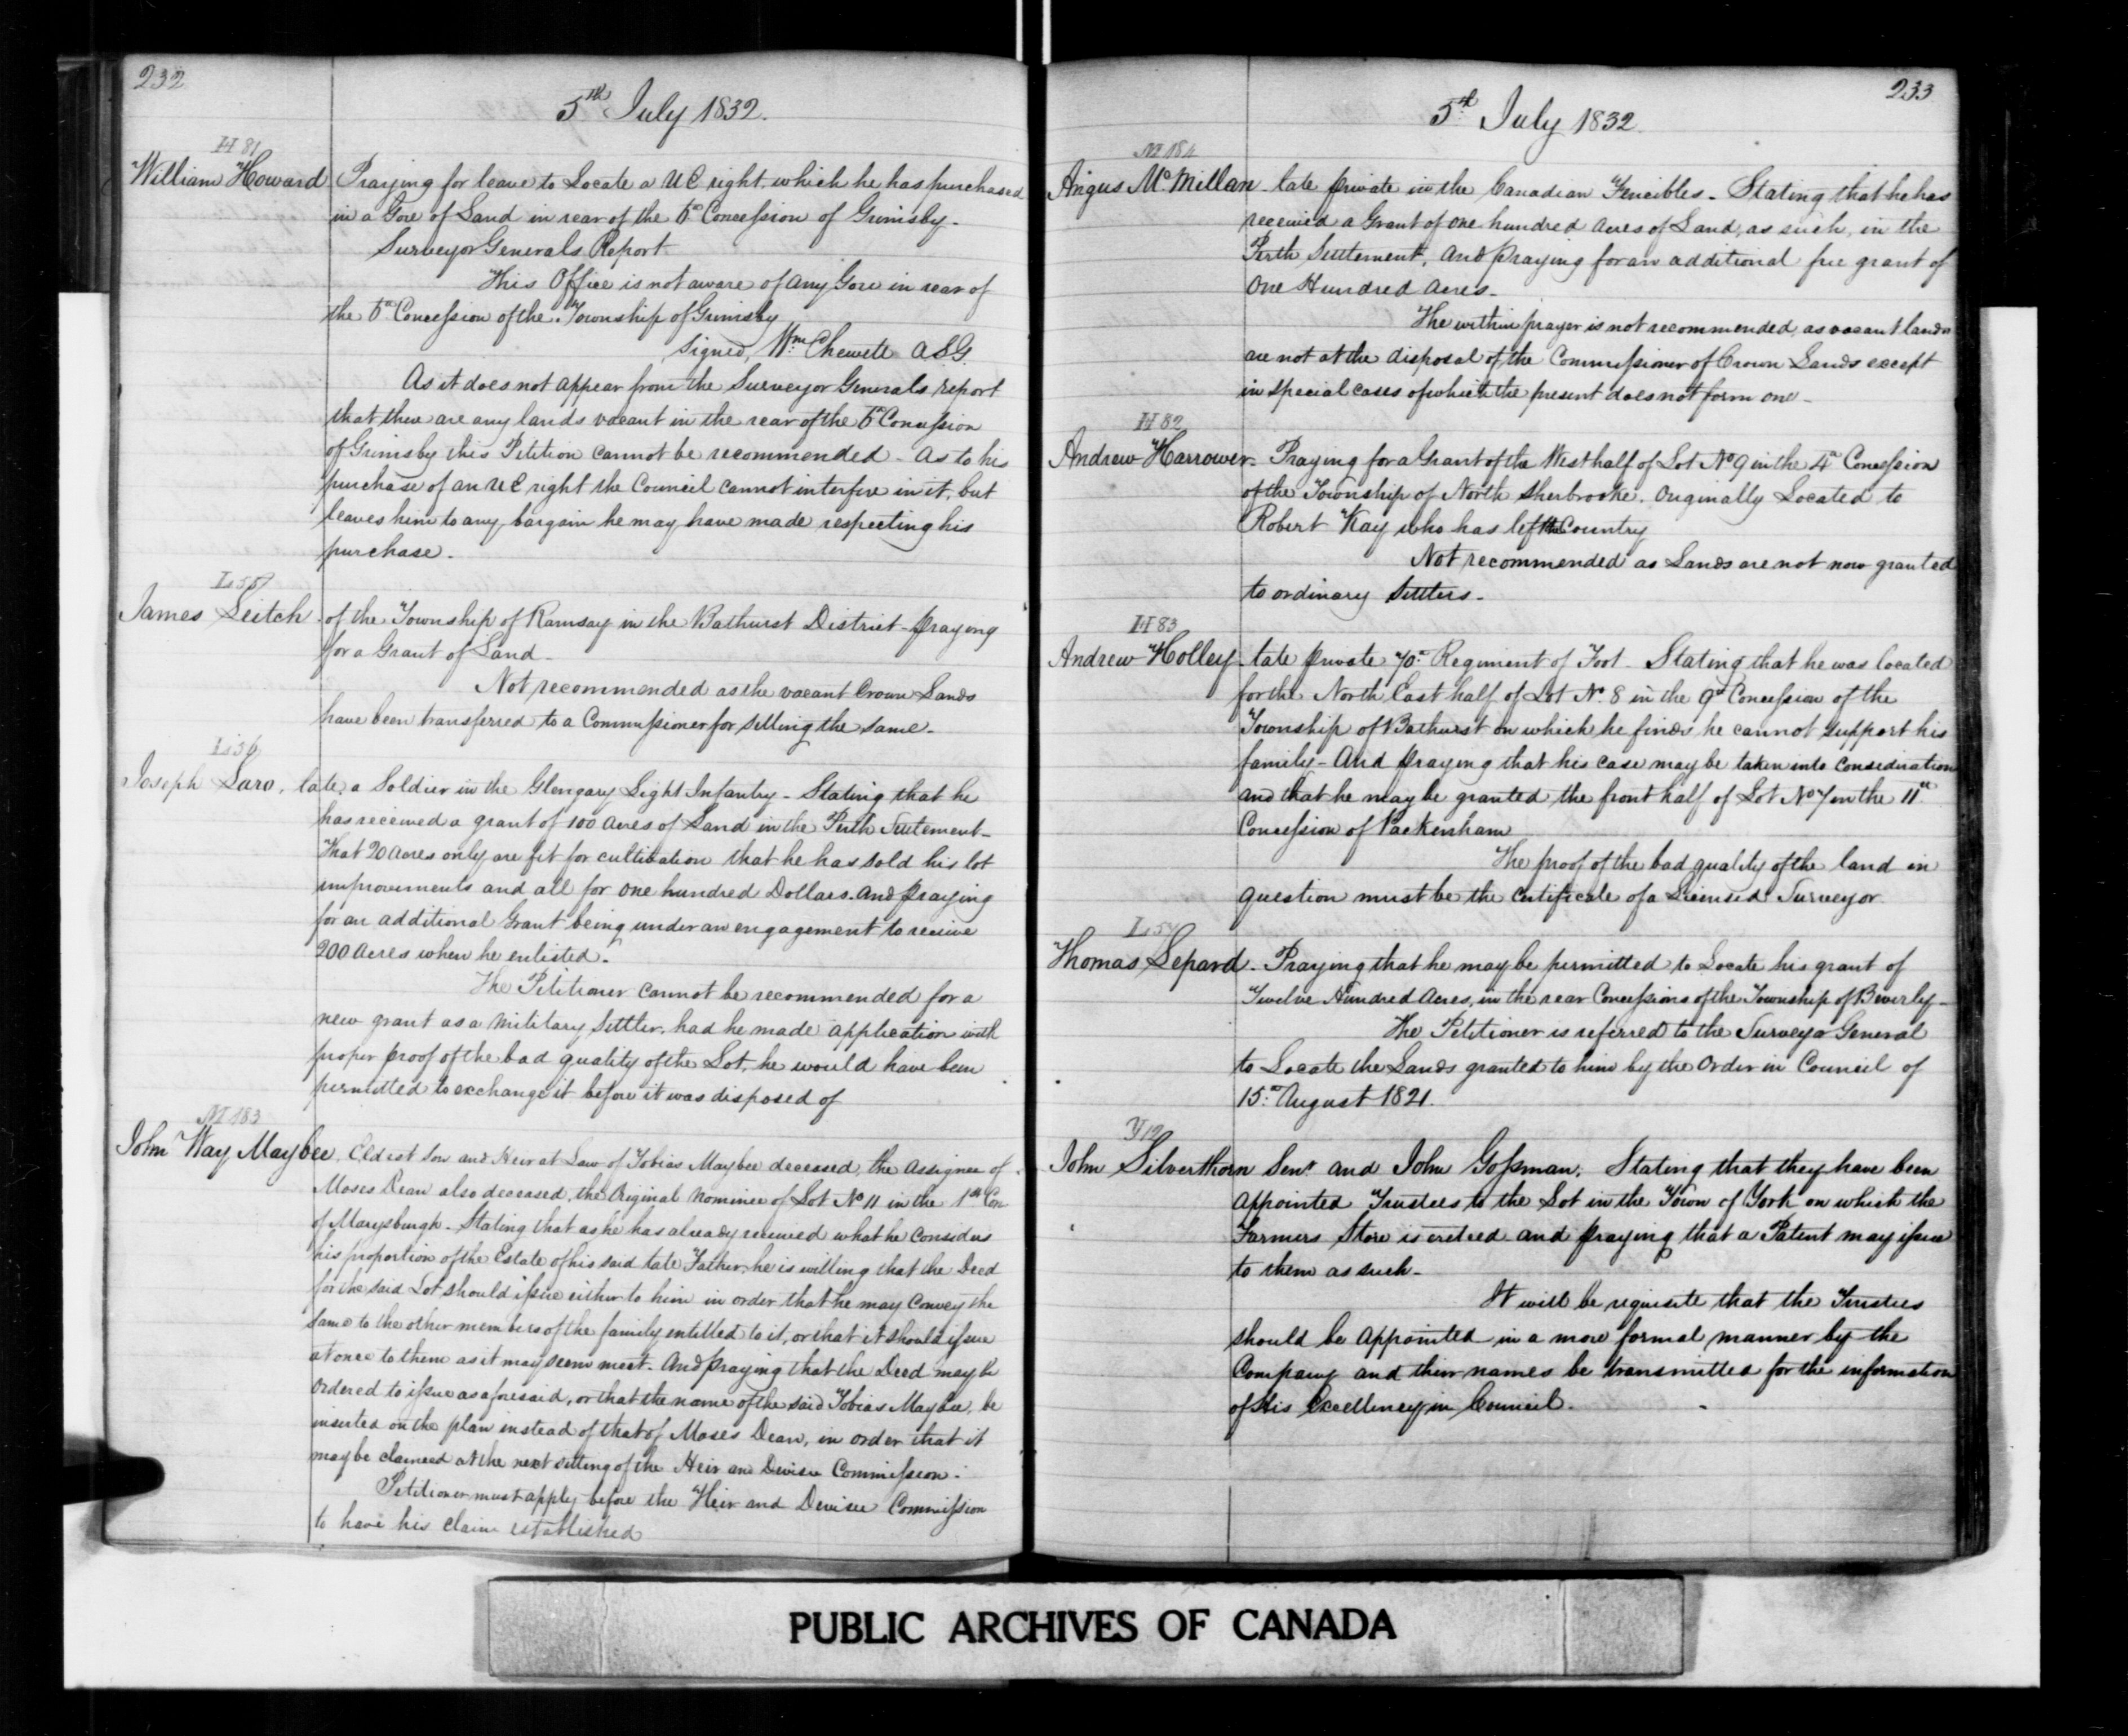 232
5th July 1832.
H 81
William Howard Praying for leave to Locate a UE right, which he has purchased
in a Gore of Land in rear of the 6th Concession of Grimsby -
Surveyor Generals Report.
This Office is not aware of any Gore in rear of
the 6th Concession of the Township of Grimsby
Signed, Wm Chewett A.S.G.
As it does not appear from the Surveyor Generals report
that there are any lands vacant in the rear of the 6th Concession
of Grimsby this Petition cannot be recommended - As to his
purchase of an UE right the Council cannot interfere in it, but
leaves him to any bargain he may have made respecting his
purchase -
L 55
James Leitch - of the Township of Ramsay in the Bathurst District - praying
for a Grant of Land -
Not recommended as the vacant Crown Lands
have been transferred to a Commissioner for selling the same -
L 56
Joseph Laro, late a Soldier in the Glengary Light Infantry - Stating that he
has received a grant of 100 acres of Land in the Perth Settlement -
That 20 acres only are fit for cultivation that he has sold his lot
improvements and all for one hundred Dollars. And praying
for an additional Grant being under an engagement to receive
200 acres when he enlisted -
The Petitioner cannot be recommended for a
new grant as a Military Settler, had he made application with
proper proof of the bad quality of the Lot, he would have been
permitted to exchange it before it was disposed of
M 183
John Way Maybee, Eldest Son and Heir at Law of Tobias Maybee deceased, the assignee of
Moses Dean also deceased, the Original nominee of Lot No 11 in the 1st Con
of Marysburgh - Stating that as he has already received what he considers
his proportion of the Estate of his said late Father, he is willing that the Deed
for the said Lot should issue either to him in order that he may convey the
same to the other members of the family entitled to it, or that it should issue
at once to them as it may seem meet. And praying that the Deed may be
ordered to issue as aforesaid, or that the name of the said Tobias Maybee, be
inserted on the plan instead of that of Moses Dean, in order that it
may be claimed at the next sitting of the Heir and Devisee Commission -
Petitioner must apply before the Heir and Devisee Commission
to have his claim established
233
5th July 1832
M 184
Angus McMillan - late private in the Canadian Fencibles - Stating that he has
received a Grant of one hundred acres of Land, as such, in the
Perth Settlement, And praying for an additional free grant of
One Hundred Acres -
The within prayer is not recommended, as vacant lands
are not at the disposal of the Commissioner of Crown Lands except
in special cases of which the present does not form one -
H 82
Andrew Harrower - Praying for a Grant of the West half of Lot No 9 in the 4th Concession
of the Township of North Sherbrooke. Originally Located to
Robert Kay who has left the Country
Not recommended as Lands are not now granted
to ordinary Settlers -
H 83
Andrew Holley - late private 70th Regiment of Foot - Stating that he was located
for the North East half of Lot No 8 in the 9th Concession of the
Township of Bathurst on which he finds he cannot support his
family - And praying that his case may be taken into consideration
and that he may be granted the front half of Lot No 7 in the 11th
Concession of Packenham
The proof of the bad quality of the land in
question must be the certificate of a Licensed Surveyor
L 57
Thomas Lepard - Praying that he may be permitted to Locate his grant of
Twelve Hundred Acres, in the rear Concessions of the Township of Beverly -
The Petitioner is referred to the Surveyor General
to Locate the Lands granted to him by the Order in Council of
15th August 1821.
Y 12
John Silverthorn Senr and John Gossman, Stating that they have been
appointed Trustees to the Lot in the Town of York on which the
Farmers Store is erected and praying that a Patent may issue
to them as such -
It will be requisite that the Trustees
should be appointed in a more formal manner by the
Company and their names be transmitted for the information
of His Excellency in Council.
PUBLIC ARCHIVES OF CANADA